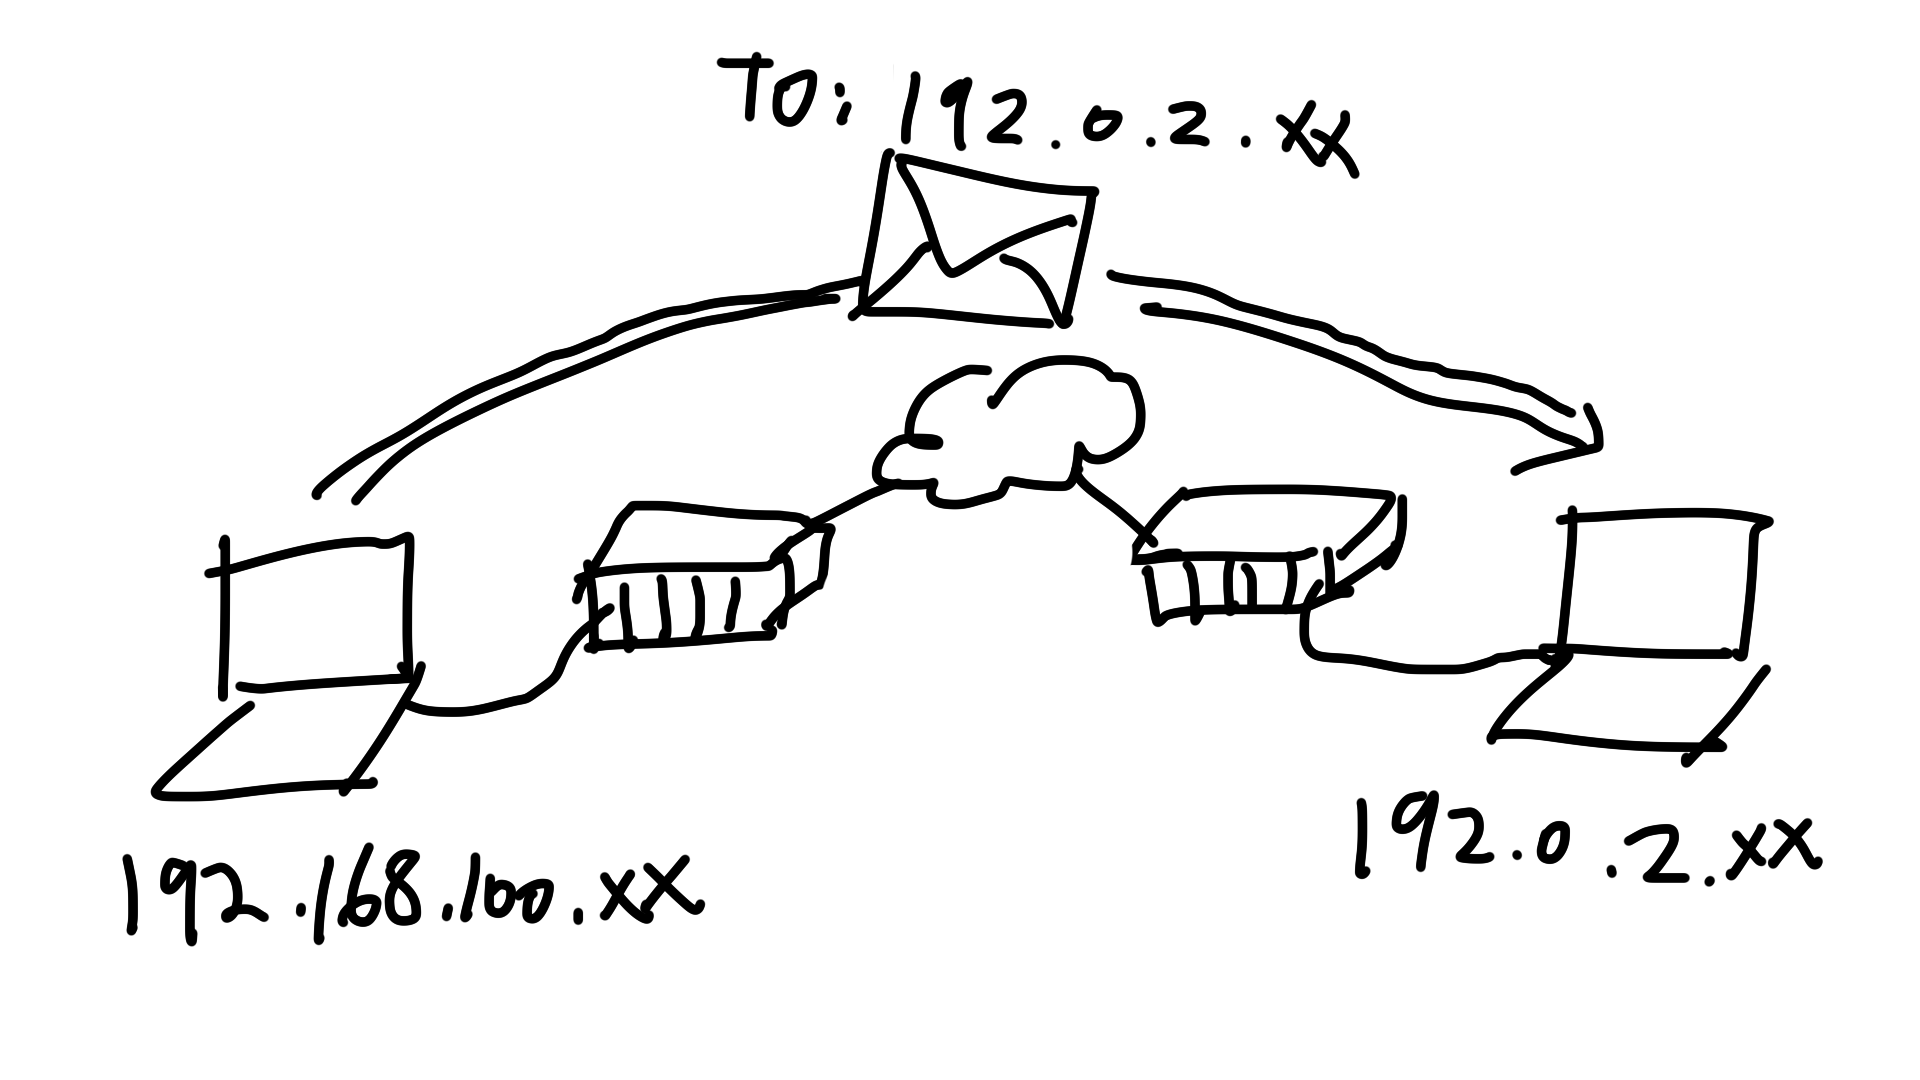 To: 192.0.2.xx
192.168.100.xx
192.0.2.xx